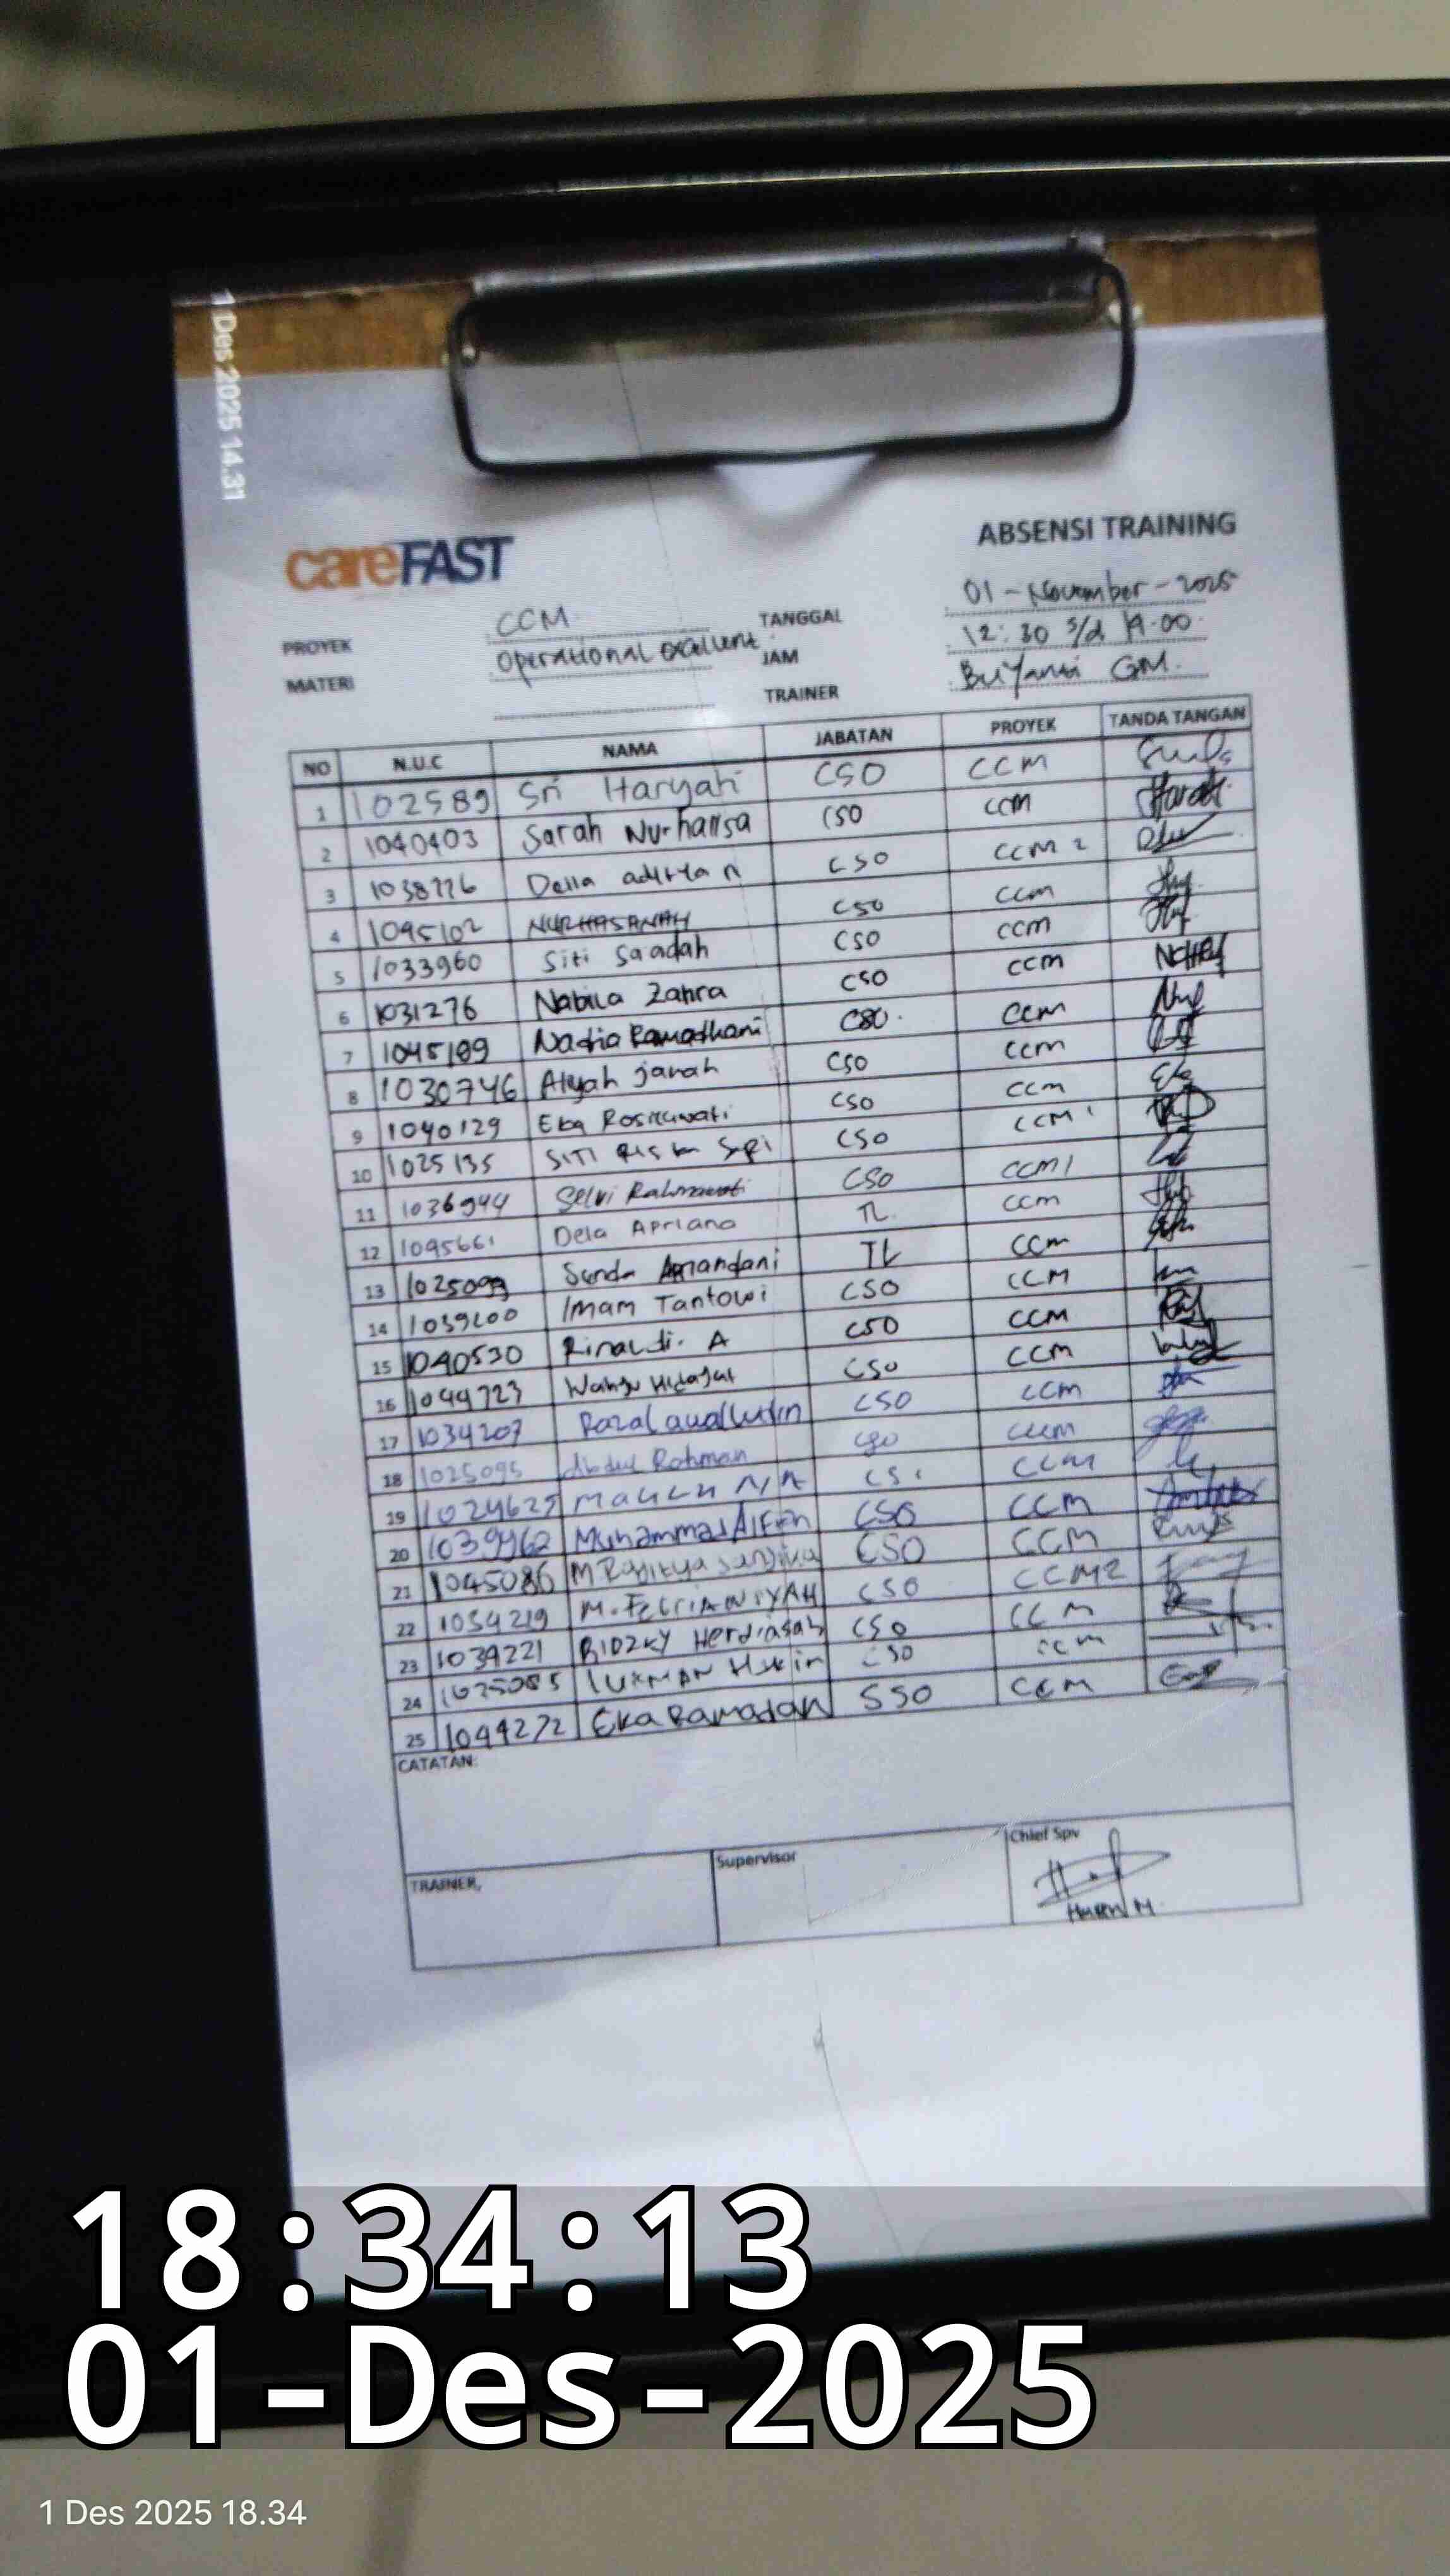 1 Des 2025 14.31
careFAST
ABSENSI TRAINING
PROYEK CCM TANGGAL 01 - November - 2025
MATERI Operational Exellent JAM 12:30 s/d 19.00
TRAINER Bu Yanti GM.
NO N.U.C NAMA JABATAN PROYEK TANDA TANGAN
1 102589 Sri Haryati CSO CCM
2 1040403 Sarah Nurhalisa CSO CCM
3 1038776 Della aditya n CSO CCM 2
4 1095102 NURHASANAH CSO CCM
5 1033960 Siti Saadah CSO CCM
6 1031276 Nabila Zahra CSO CCM
7 1045189 Nadia Ramadhani CSO CCM
8 1030746 Alyah Janah CSO CCM
9 1040129 Eka Rosmawati CSO CCM
10 1025135 SITI CSO CCM 1
11 1036944 Selvi Rahmawati CSO CCM1
12 1095661 Dela Apriana TL CCM
13 Sunda Amandani TL CCM
14 1039200 Imam Tantowi CSO CCM
15 1040530 Rinaldi. A CSO CCM
16 1044723 Wahyu Hidayat CSO CCM
17 1034207 CSO CCM
18 1025095 Abdul Rohman CSO CCM
19 1024627 CCM
20 1039962 Muhammad CSO CCM
21 1045086 M Raditya CSO CCM
22 1034219 M. FEBRIANSYAH CSO CCM2
23 1039221 RIDZKY Herdiasah CSO CCM
24 1025085 LUKMAN CSO CCM
25 1044272 Eka Ramadan SSO CCM
CATATAN:
TRAINER,
Supervisor
Chief Spv
18:34:13
01-Des-2025
1 Des 2025 18.34